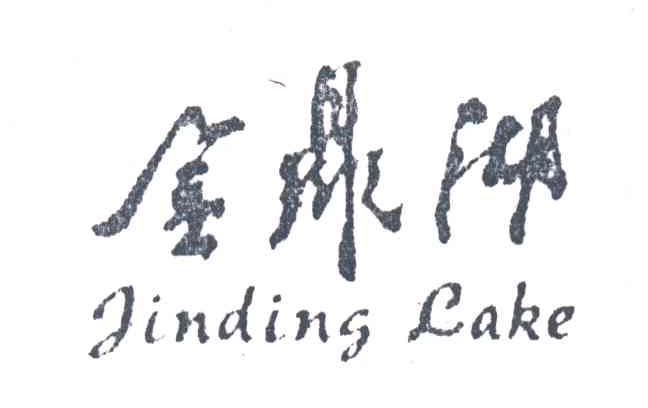 金鼎湖
Jinding Lake